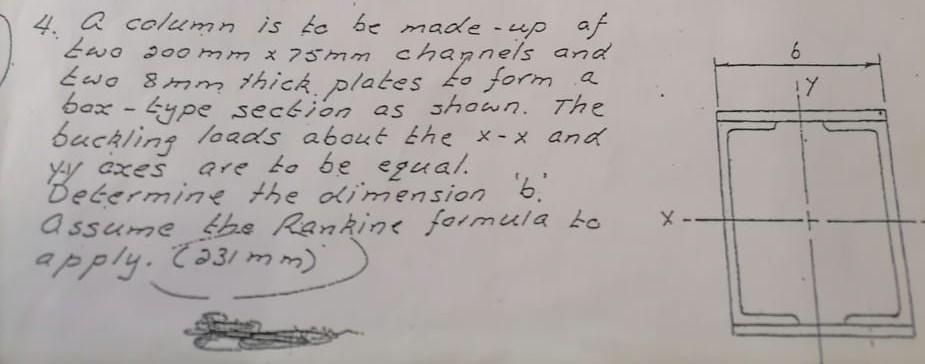 4. A column is to be made-up of
two 200mm x 75mm channels and
two 8mm thick plates to form a
box-type section as shown. The
buckling loads about the x-x and
y-y axes are to be equal.
Determine the dimension 'b'.
Assume the Rankine formula to
apply. (231mm)
b
Y
X